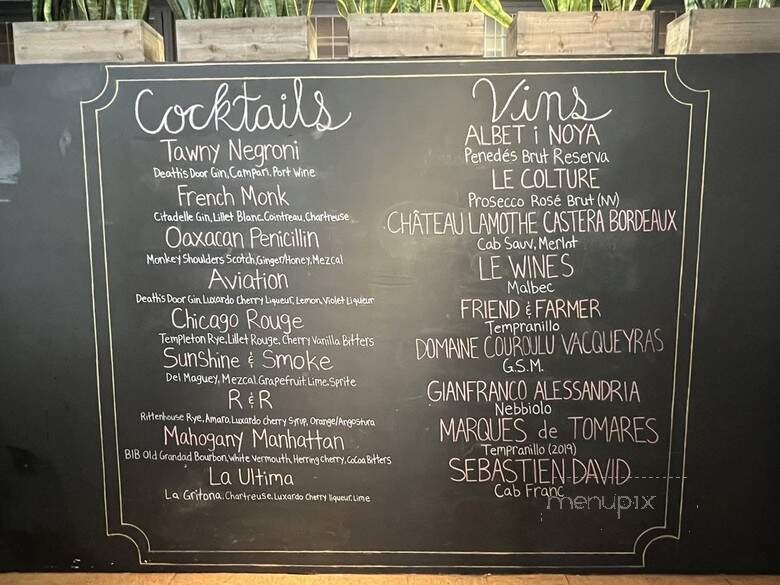 Cocktails
Tawny Negroni
Death's Door Gin, Campari, Port Wine
French Monk
Citadelle Gin, Lillet Blanc, Cointreau, Chartreuse
Oaxacan Penicillin
Monkey Shoulders Scotch, Ginger/Honey, Mezcal
Aviation
Death's Door Gin, Luxardo Cherry Liqueur, Lemon, Violet Liqueur
Chicago Rouge
Templeton Rye, Lillet Rouge, Cherry Vanilla Bitters
Sunshine & Smoke
Del Maguey, Mezcal, Grapefruit, Lime, Sprite
R & R
Rittenhouse Rye, Amara, Luxardo cherry Syrup, Orange/Angostura
Mahogany Manhattan
BIB Old Grandad Bourbon, White Vermouth, Herring Cherry, CoCoa Bitters
La Ultima
La Gritona, Chartreuse, Luxardo Cherry liqueur, Lime
Vins
ALBET i NOYA
Penedés Brut Reserva
LE COLTURE
Prosecco Rosé Brut (NV)
CHÂTEAU LAMOTHE CASTERA BORDEAUX
Cab Sauv, Merlot
LE WINES
Malbec
FRIEND & FARMER
Tempranillo
DOMAINE COUROULU VACQUEYRAS
G.S.M.
GIANFRANCO ALESSANDRIA
Nebbiolo
MARQUES de TOMARES
Tempranillo (2019)
SEBASTIEN DAVID
Cab Franc
menupix